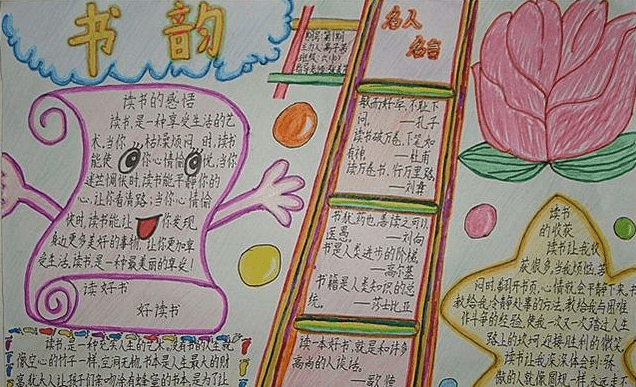 书韵
名人
名言
读书的感悟
读书，是一种享受生活的艺
术。当你枯燥烦闷时，读书
能使你心情愉悦；当你
迷茫惆怅时，读书能平静你的
心，让你看清路；当你心情愉
快时，读书能让你发现
身边更多美好的事物，让你更加享
受生活。读书是一种最美丽的享受！
读好书
好读书
敏而好学，不耻下
问。 —孔子
读书破万卷，下笔如
有神 —杜甫
读万卷书，行万里路
—刘彝
书犹药也，善读之可以
医愚。 —刘向
书是人类进步的阶梯。
—高尔基
书籍是人类知识的总
统。 —莎士比亚
读一本好书，就是和许多
高尚的人谈话。
—歌德
读书
的收获
读书让我收
获很多，当我烦恼、苦
闷时，翻开书页，心情就会平静下来，书
教给我冷静处事的方法，教给我与困难
作斗争的经验，使我一次又一次踏过人生
路上的坎坷，迎接胜利的微笑
读书让我深深体会到：张
读书，是一种充实人生的艺术。没有书的人生就
像空心的竹子一样，空洞无物。书本是人生最大的财